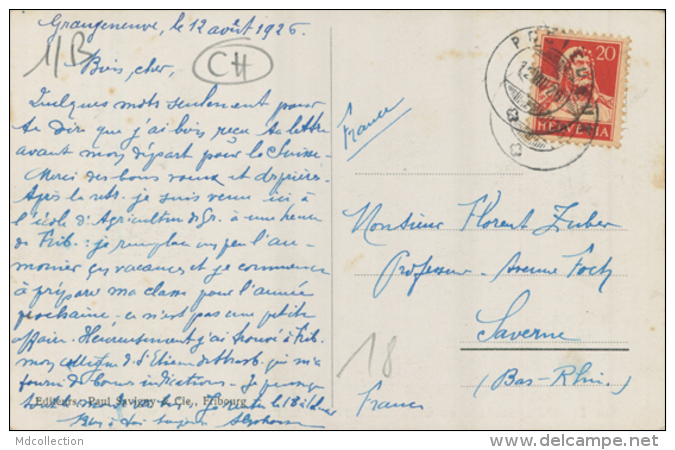 Grangeneuve, le 12 août 1926
11/B
CH
Bien cher,
Quelques mots seulement pour
te dire que j'ai bien reçu ta lettre
avant mon départ pour la Suisse.
Merci des bons vœux et des prières.
Après la je suis venu ici à
l'école d'Agriculture de Gr. à une heure
de Frib. : je remplace un peu l'au-
mônier en vacances et je commence
à préparer ma classe pour l'année
prochaine - ce n'est pas une petite
affaire. Heureusement j'ai trouvé à Frib.
mon collègue de St Etienne de Strasb. qui m'a
fourni de bonnes indications. Je
Je rentre le 18 à
Bien à toi toujours Alphonse
Editeurs, Paul Savigny & Cie., Fribourg
20
HELVETIA
France
Monsieur Florent Zuber
Professeur - Avenue Foch
Saverne
(Bas-Rhin)
France
18
Mdcollection
www.delcampe.net